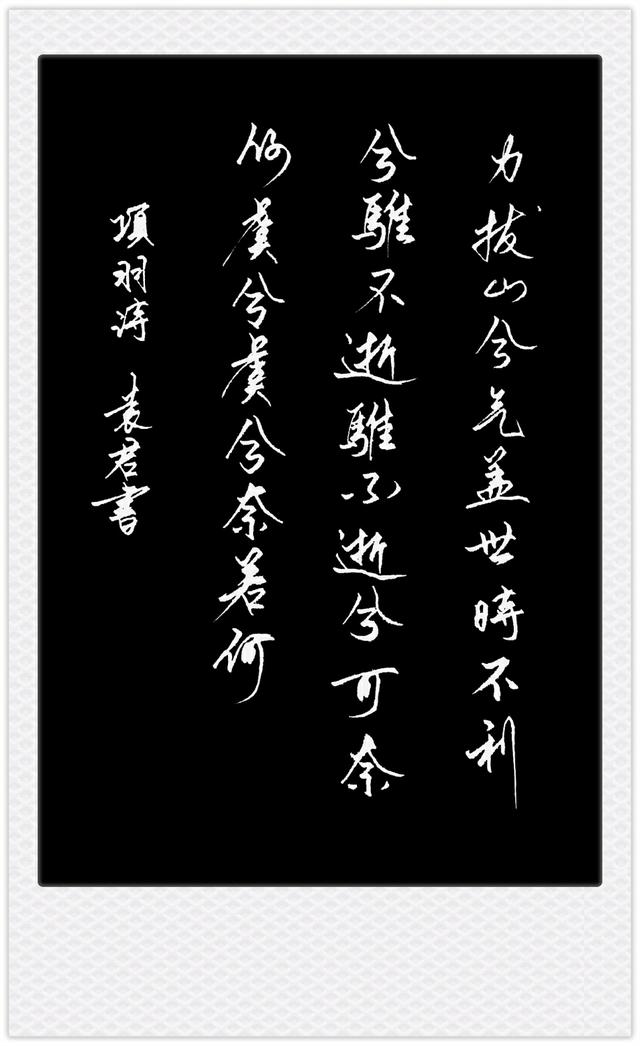 力拔山兮气盖世時不利
兮騅不逝騅不逝兮可奈
何虞兮虞兮奈若何
項羽诗 袁君書